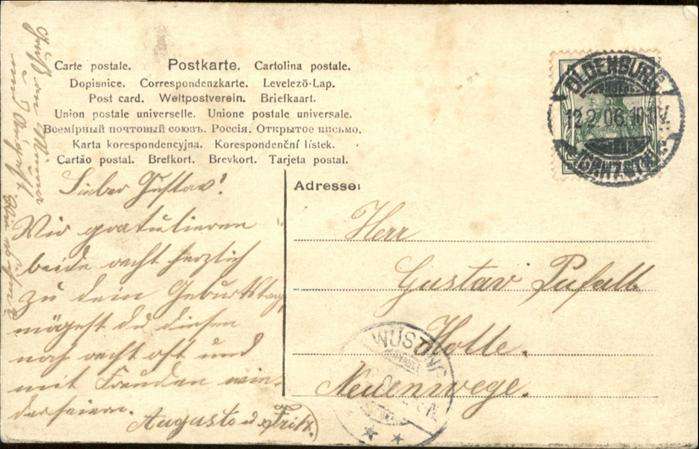 Carte postale. Postkarte. Cartolina postale.
Dopisnice. Correspondenzkarte. Levelező-Lap.
Post card. Weltpostverein. Briefkaart.
Union postale universelle. Unione postale universale.
Всемірный почтовый союзъ. Россія. Открытое письмо.
Karta korespondencyjna. Korespondenční lístek.
Cartão postal. Brefkort. Brevkort. Tarjeta postal.
Lieber Gustav!
Wir gratulieren
beide recht herzlich
zu dem Geburtstag,
mögest du diesen
noch recht oft und
mit Freuden wie-
derfeiern.
Auguste u. Fritz.
Adresse:
Herr
Gustav Pufalt
Holle.
Neuenwege.
OLDENBURG
12.2.06.10-11V.
(GRHZGT.)
WÜSTING